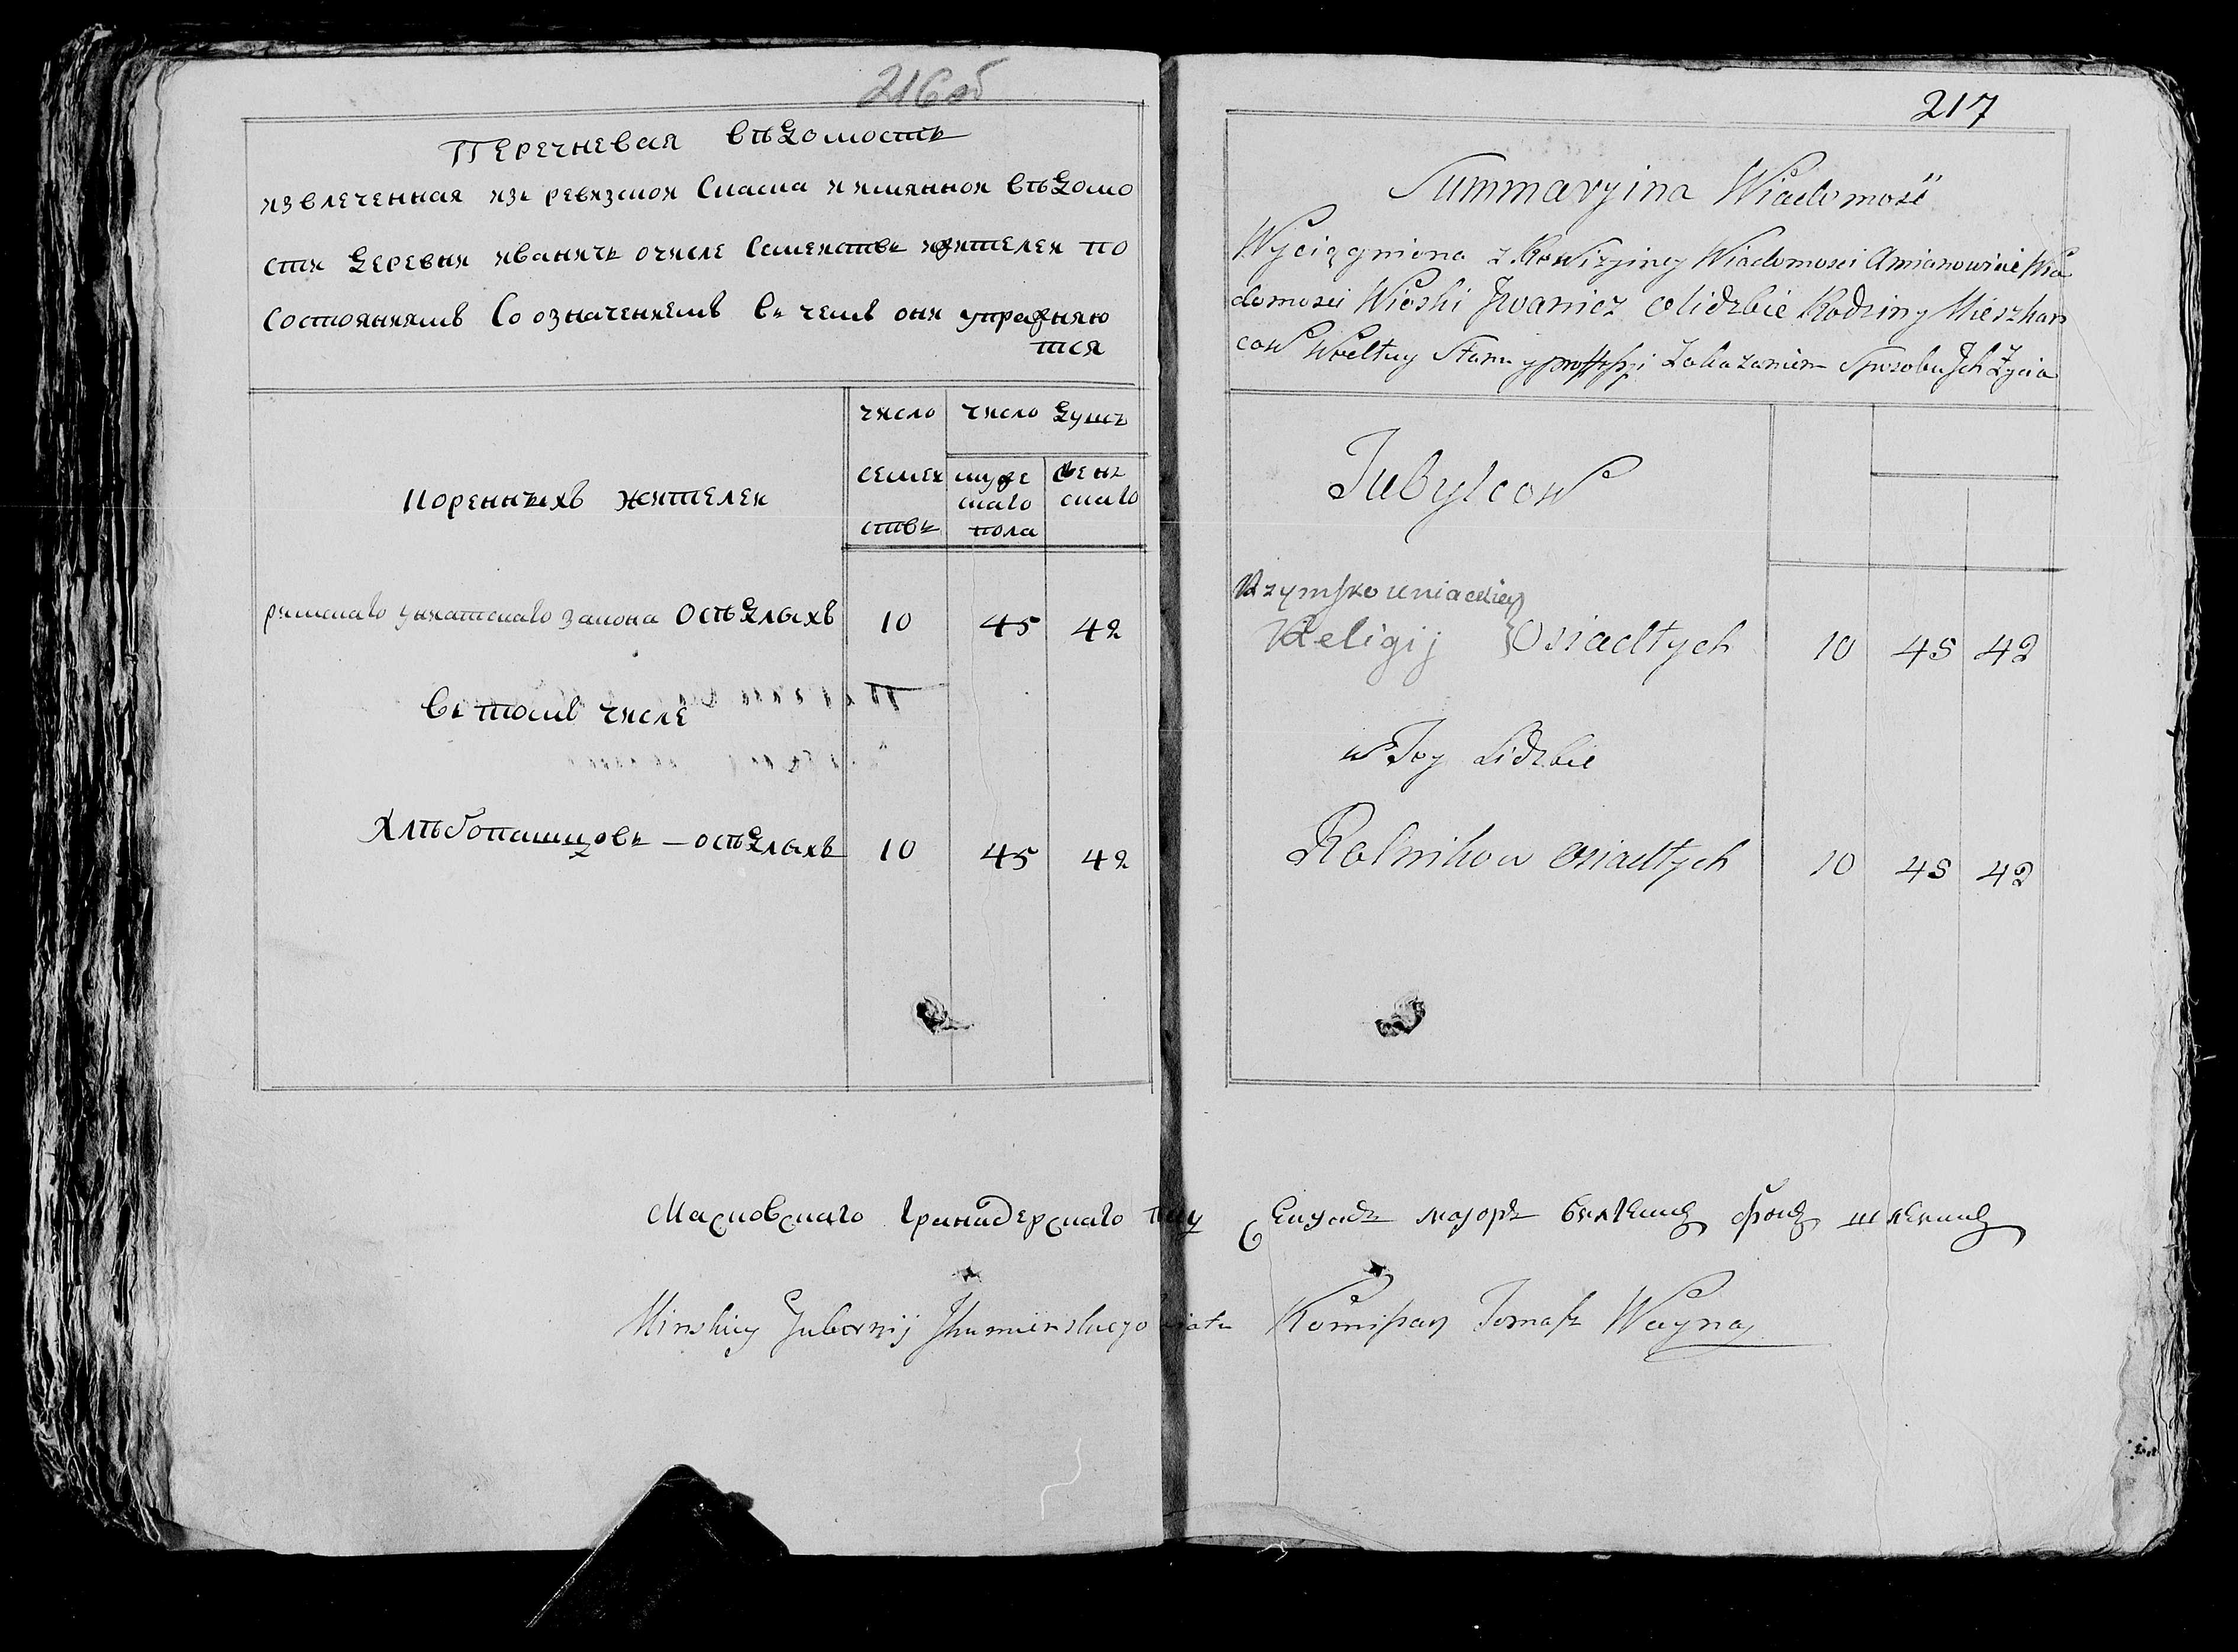 216об
Перечневая вѣдомость
извлеченная изъ ревизской скаски и имянной вѣдомо
сти деревни иваничь о числе семействъ и жителей по
состояниямъ со означениемъ въ чемъ они упражняю
тся
число число душъ
семей муже женъ
ского скаго
ствъ пола
коренныхъ жителей
римскаго униатскаго закона осѣдлыхъ 10 45 42
въ томъ числе
Хлѣбопашцовъ — осѣдлыхъ 10 45 42
217
Summaryina Wiadomość
Wyciągniona z Rewizyiney Wiadomosci Amianowicie Wia
domosci Wioski Jwanicz o lidzbie Rodziny Mieszkan
cow Wedlug Stanu y professyi Zokazaniem Sposobu Jch Życia
Tubylcow
Rzymsko uniackiey
Religij Osiadłych 10 45 42
w Tey Lidzbie
Rolnikow osiadłych 10 45 42
Московскаго Гранадерскаго полку Секундъ маіоръ
Minskiey Gubernij Jhumenskiego Komissarz Tomasz Wayna